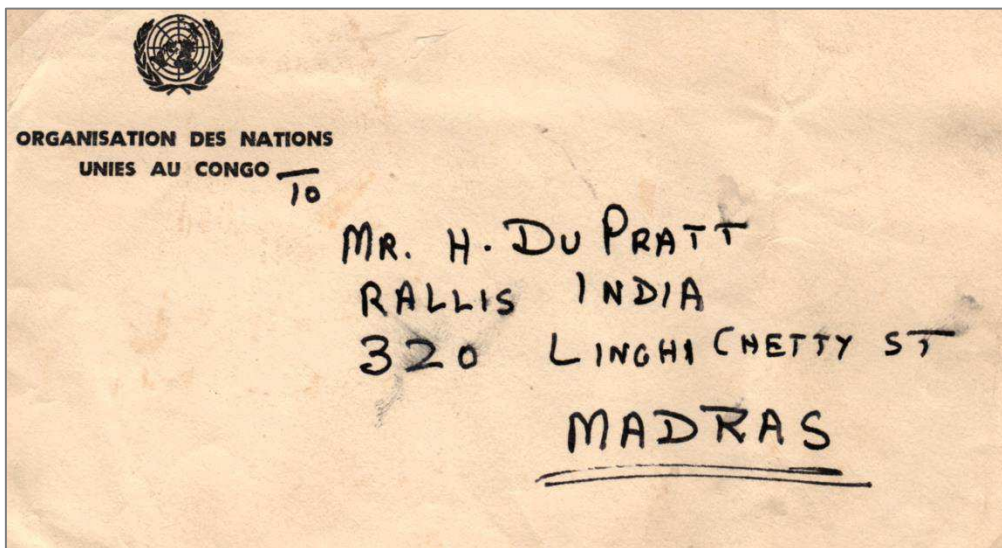 ORGANISATION DES NATIONS
UNIES AU CONGO
TO
MR. H. DU PRATT
RALLIS INDIA
320 LINGHI CHETTY ST
MADRAS